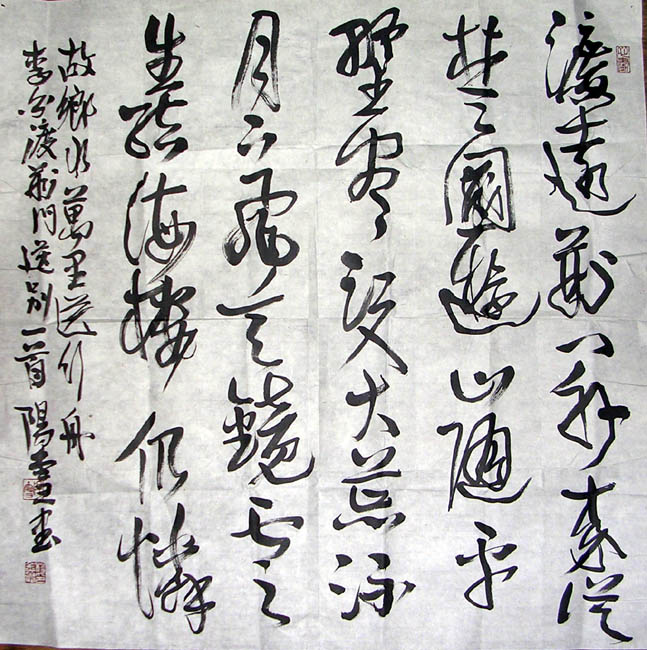 渡遠荊門外來從
楚國遊山隨平
野盡江入大荒流
月下飛天鏡雲
生結海樓仍憐
故鄉水萬里送行舟
李白渡荊門送別一首 陽書